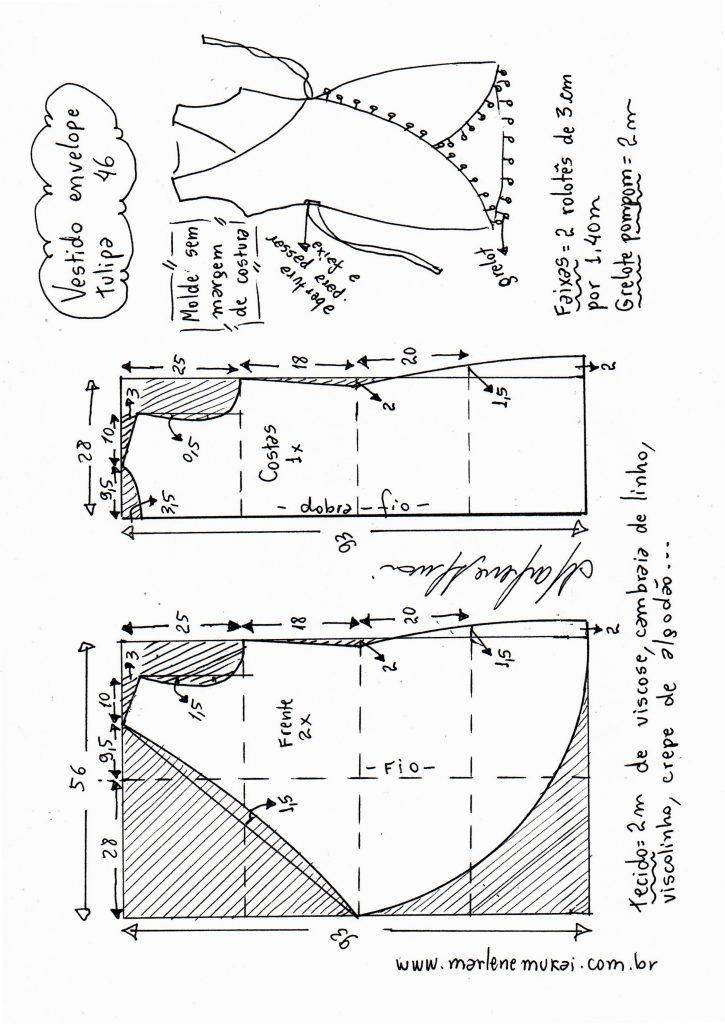 Vestido envelope
tulipa 46
"Molde" sem
margem"
de costura"
abertura
para passar
a faixa
grelot
Faixas = 2 rolotês de 3 cm
por 1,40m
Grelote pompom = 2m
28
9,5
10
3
25
18
20
3,5
0,5
2
1,5
2
Costas
1x
- dobra - fio -
93
Marlene Mukai
56
28
9,5
10
3
25
18
20
1,5
2
1,5
2
1,5
Frente
2x
- FIO -
93
Tecido = 2m de viscose, cambraia de linho,
viscolinho, crepe de algodão...
www.marlenemukai.com.br